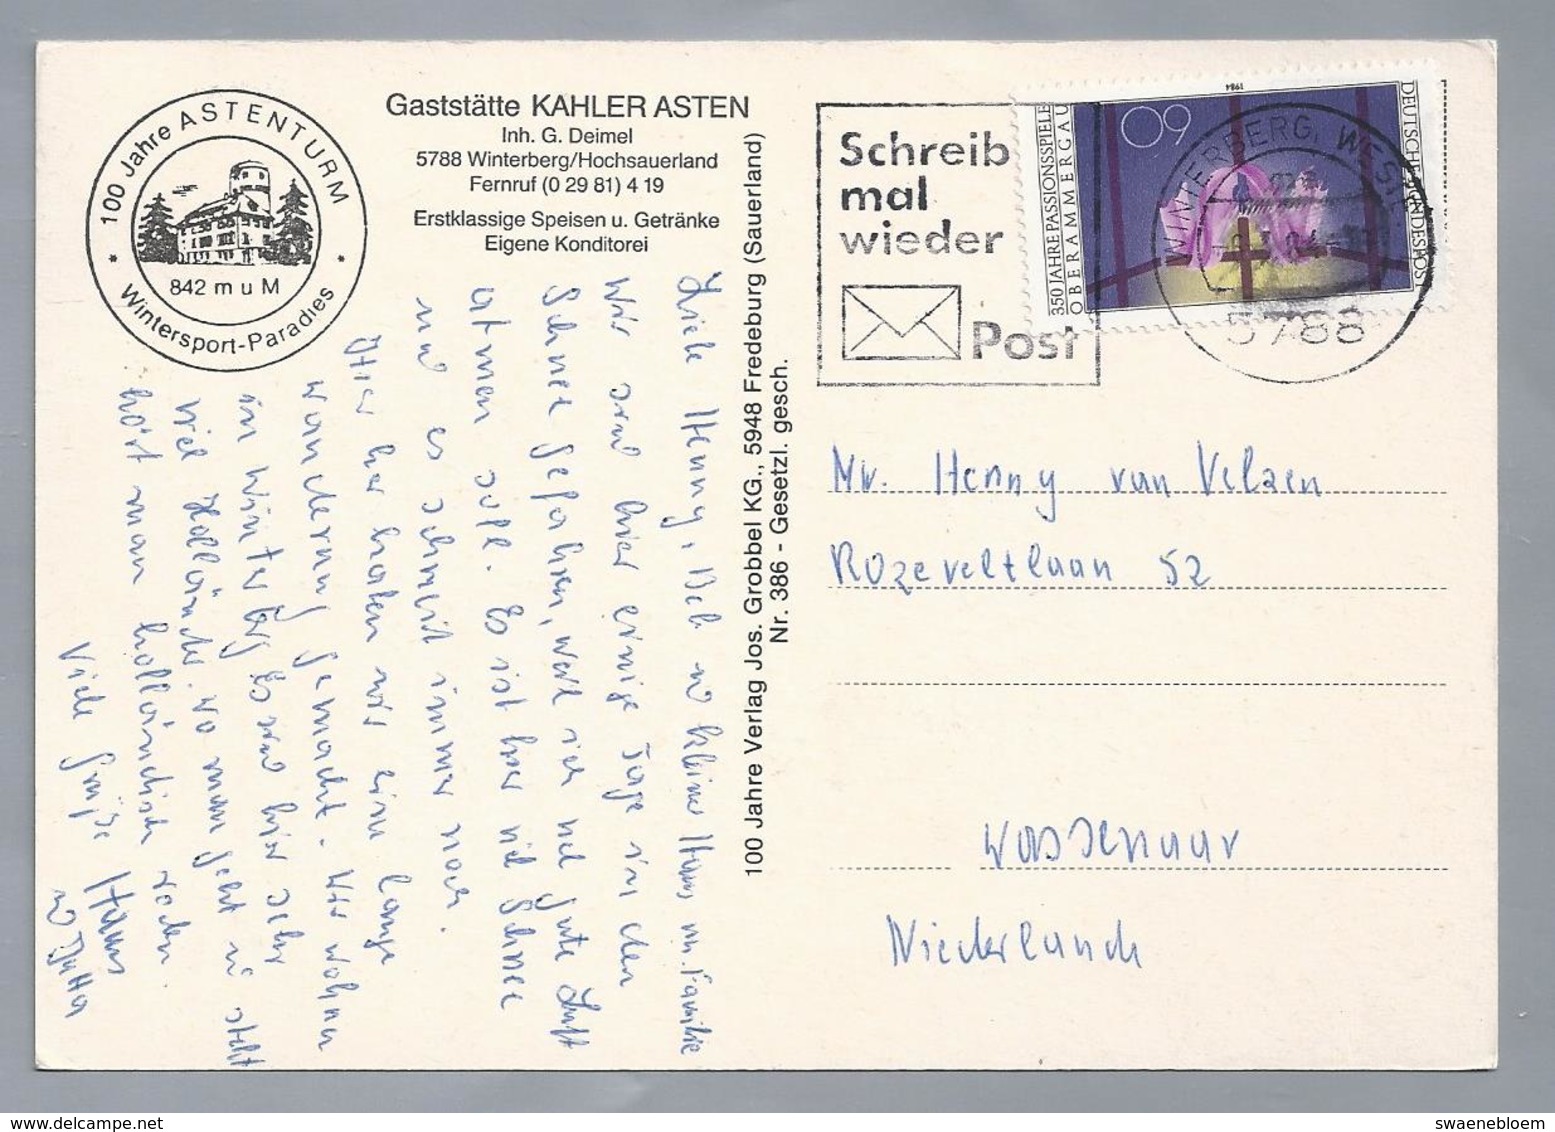 100 Jahre ASTENTURM
842 m u M
* Wintersport-Paradies *
Gaststätte KAHLER ASTEN
Inh. G. Deimel
5788 Winterberg/Hochsauerland
Fernruf (0 29 81) 4 19
Erstklassige Speisen u. Getränke
Eigene Konditorei
Liebe Henny, Bob u kleiner Hans m. Familie
Wir sind hier einige Tage in den
Schnee gefahren, weil ich mal gute Luft
atmen soll. Es ist hier viel Schnee
und es schneit immer noch.
Hier haben wir eine lange
Wanderung gemacht. Wir wohnen
in Winterberg Es sind hier sehr
viel Holländer. wo man geht u steht
hört man holländisch reden.
Viele Grüße Hans
u Jutta
100 Jahre Verlag Jos. Grobbel KG., 5948 Fredeburg (Sauerland)
Nr. 386 - Gesetzl. gesch.
Schreib
mal
wieder
Post
350 JAHRE PASSIONSSPIELE
OBERAMMERGAU
60
1984
DEUTSCHE BUNDESPOST
WINTERBERG, WESTF
5788
Mr. Henny van Velzen
Rozeveltlaan 52
Wassenaar
Niederlande
swaenebloem